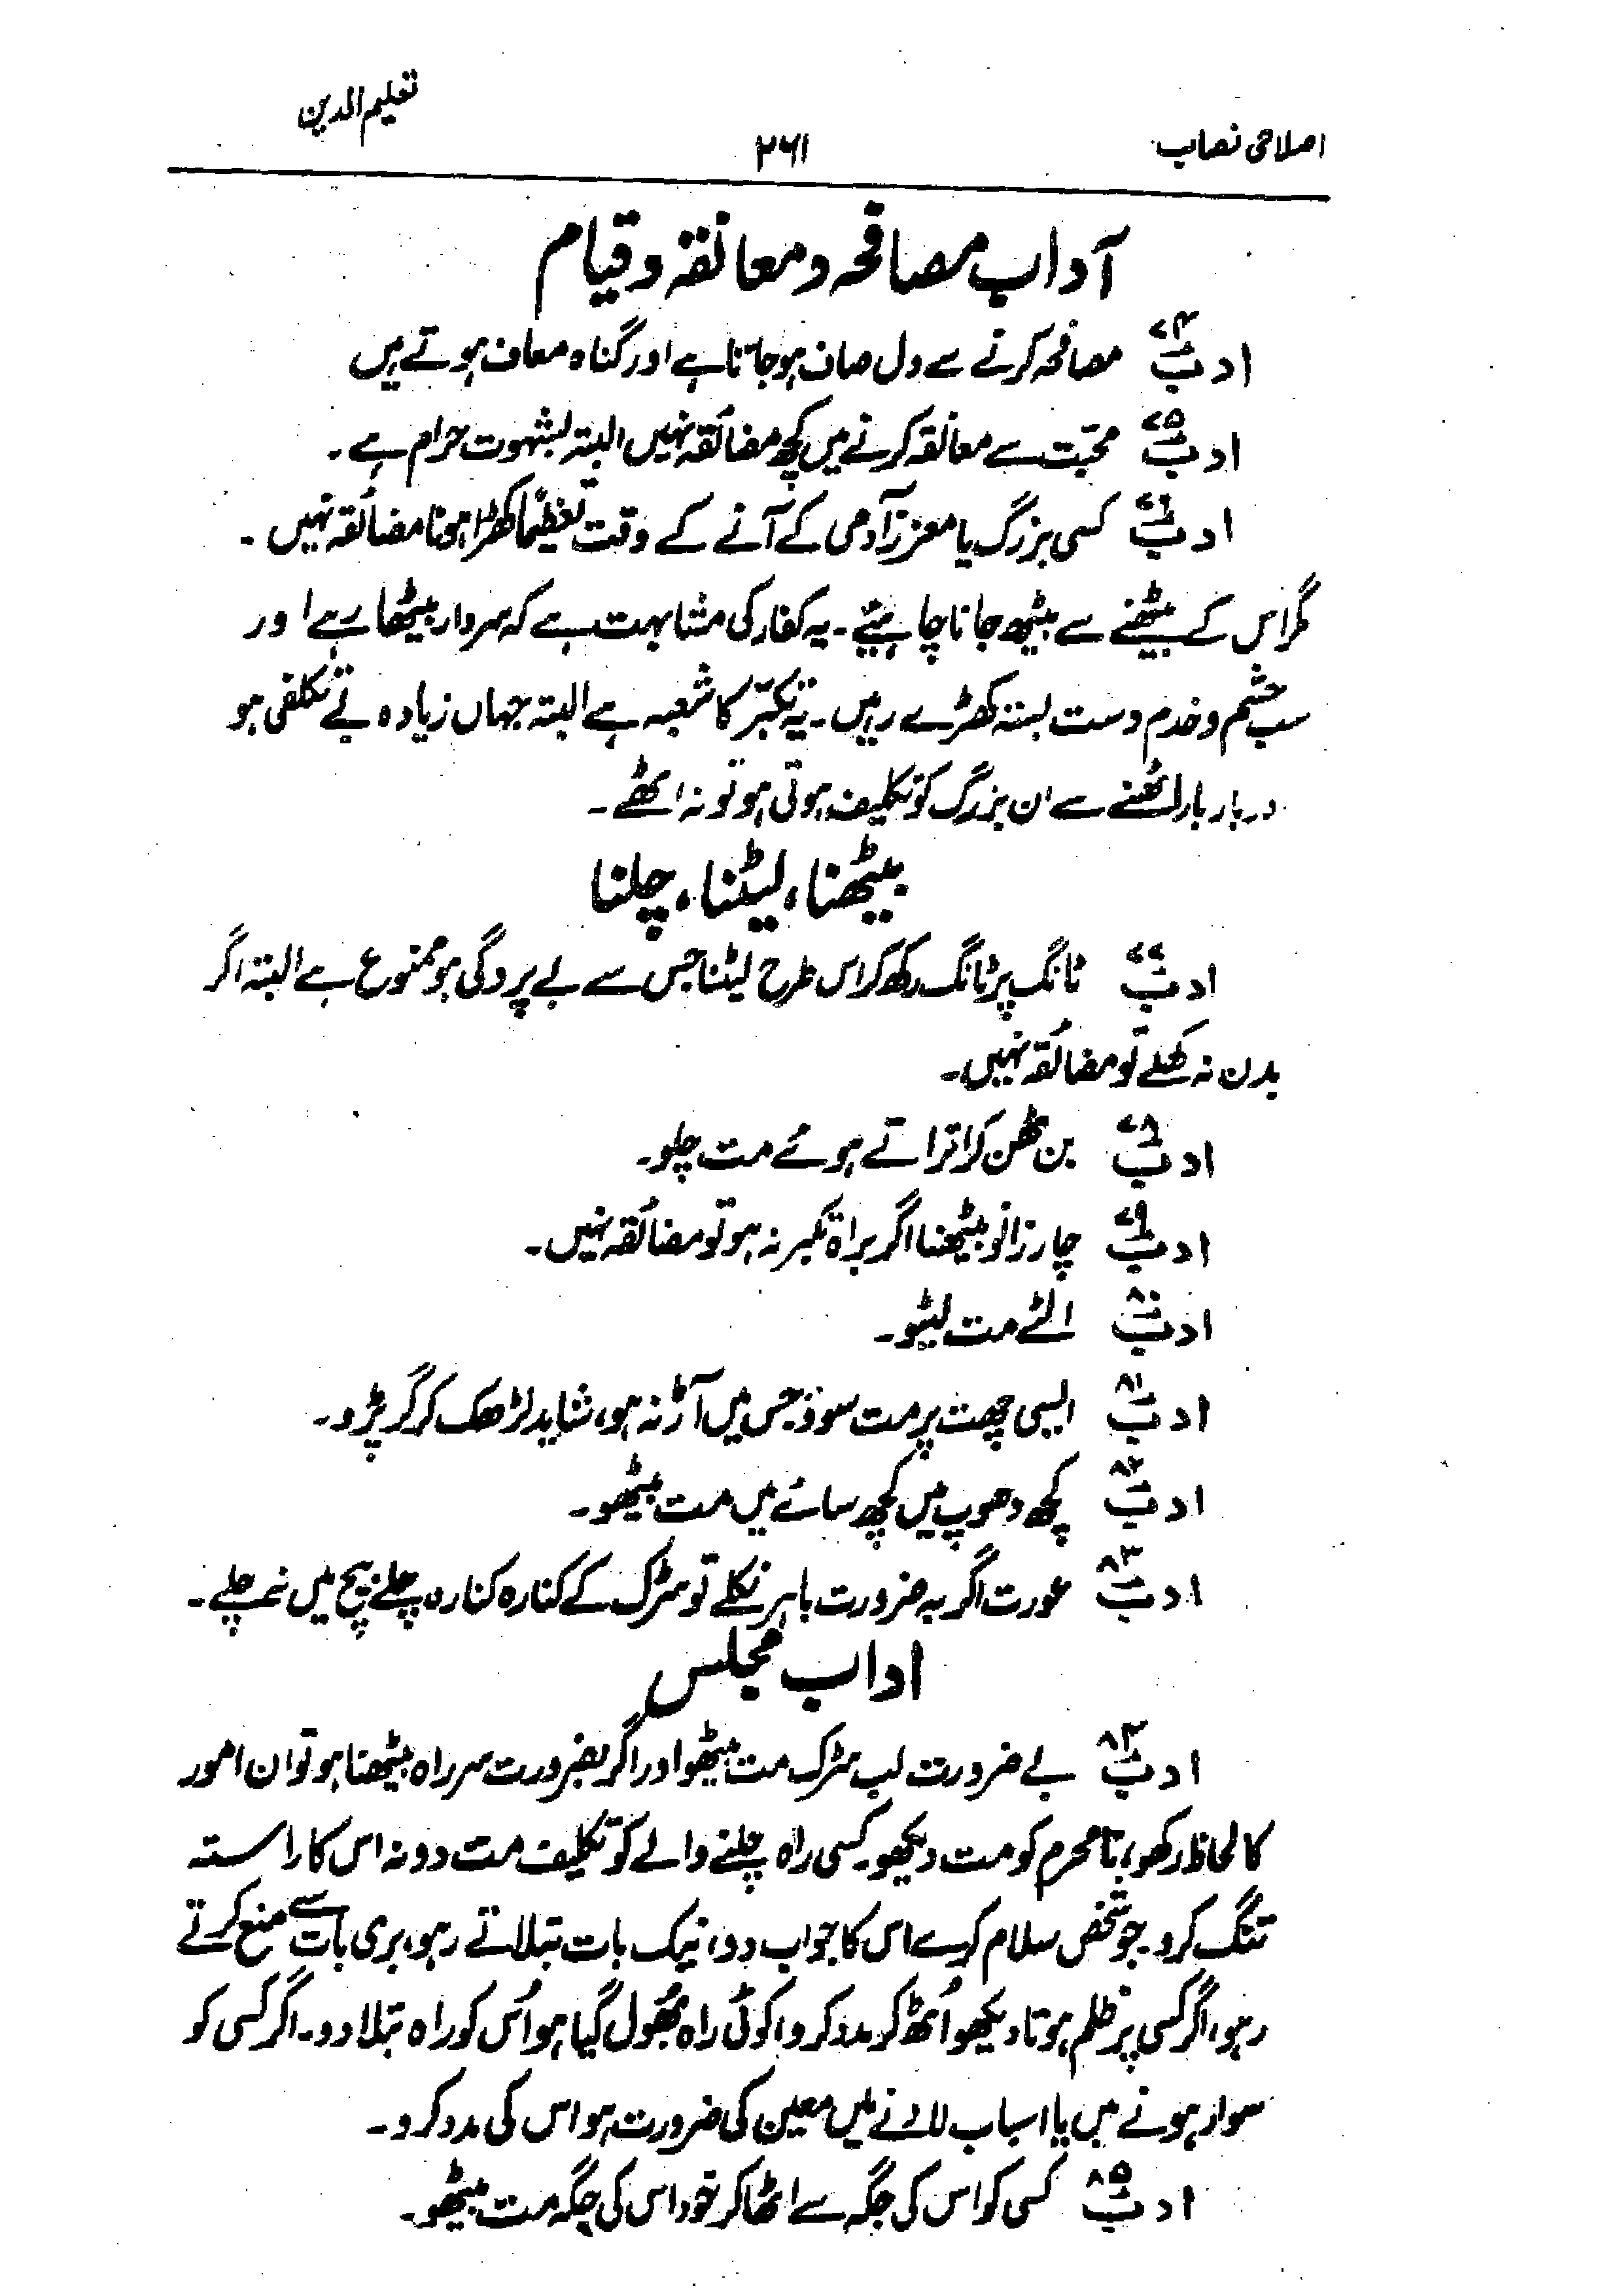 اصلاحی نصاب ۲۶۱ تعلیم الدین
آداب مصافحہ و معانقہ و قیام
ادب ۷۴ مصافحہ کرنے سے دل صاف ہو جاتا ہے اور گناہ معاف ہوتے ہیں
ادب ۷۵ محبّت سے معانقہ کرنے میں کچھ مضائقہ نہیں البتہ بشہوت حرام ہے۔
ادب ۷۶ کسی بزرگ یا معزز آدمی کے آنے کے وقت تعظیماً کھڑا ہونا مضائقہ نہیں۔
مگر اس کے بیٹھنے سے بیٹھ جانا چاہیئے۔ یہ کفار کی مشابہت ہے کہ سردار بیٹھا رہے اور
سب حشم و خدم دست بستہ کھڑے رہیں۔ یہ تکبّر کا شعبہ ہے البتہ جہاں زیادہ بے تکلفی ہو
در بار بار اٹھنے سے ان بزرگ کو تکلیف ہوتی ہو تو نہ اٹھے۔
بیٹھنا، لیٹنا، چلنا
ادب ۷۷ ٹانگ پر ٹانگ رکھ کر اس طرح لیٹنا جس سے بے پردگی ہو ممنوع ہے البتہ اگر
بدن نہ کھلے تو مضائقہ نہیں۔
ادب ۷۸ بن ٹھن کر اتراتے ہوئے مت چلو۔
ادب ۷۹ چار زانو بیٹھنا اگر براہ تکبر نہ ہو تو مضائقہ نہیں۔
ادب ۸۰ الٹے مت لیٹو۔
ادب ۸۱ ایسی چھت پر مت سوؤ جس میں آڑ نہ ہو، شاید لڑھک کر گر پڑو۔
ادب ۸۲ کچھ دھوپ میں کچھ سائے میں مت بیٹھو۔
ادب ۸۳ عورت اگر بہ ضرورت باہر نکلے تو سڑک کے کنارہ کنارہ چلے بیچ میں نہ چلے۔
اداب مجلس
ادب ۸۴ بے ضرورت لب سڑک مت بیٹھو اور اگر بضرورت سر راہ بیٹھنا ہو تو ان امور
کا لحاظ رکھو، نامحرم کو مت دیکھو۔ کسی راہ چلنے والے کو تکلیف مت دو نہ اس کا راستہ
تنگ کرو۔ جو شخص سلام کرے اس کا جواب دو، نیک بات بتلاتے رہو، بری بات سے منع کرتے
رہو، اگر کسی پر ظلم ہوتا دیکھو اُٹھ کر مدد کرو، کوئی راہ بھُول گیا ہو اُس کو راہ بتلا دو۔ اگر کسی کو
سوار ہونے میں یا اسباب لادنے میں معین کی ضرورت ہو اس کی مدد کرو۔
ادب ۸۵ کسی کو اس کی جگہ سے اٹھا کر خود اس کی جگہ مت بیٹھو۔